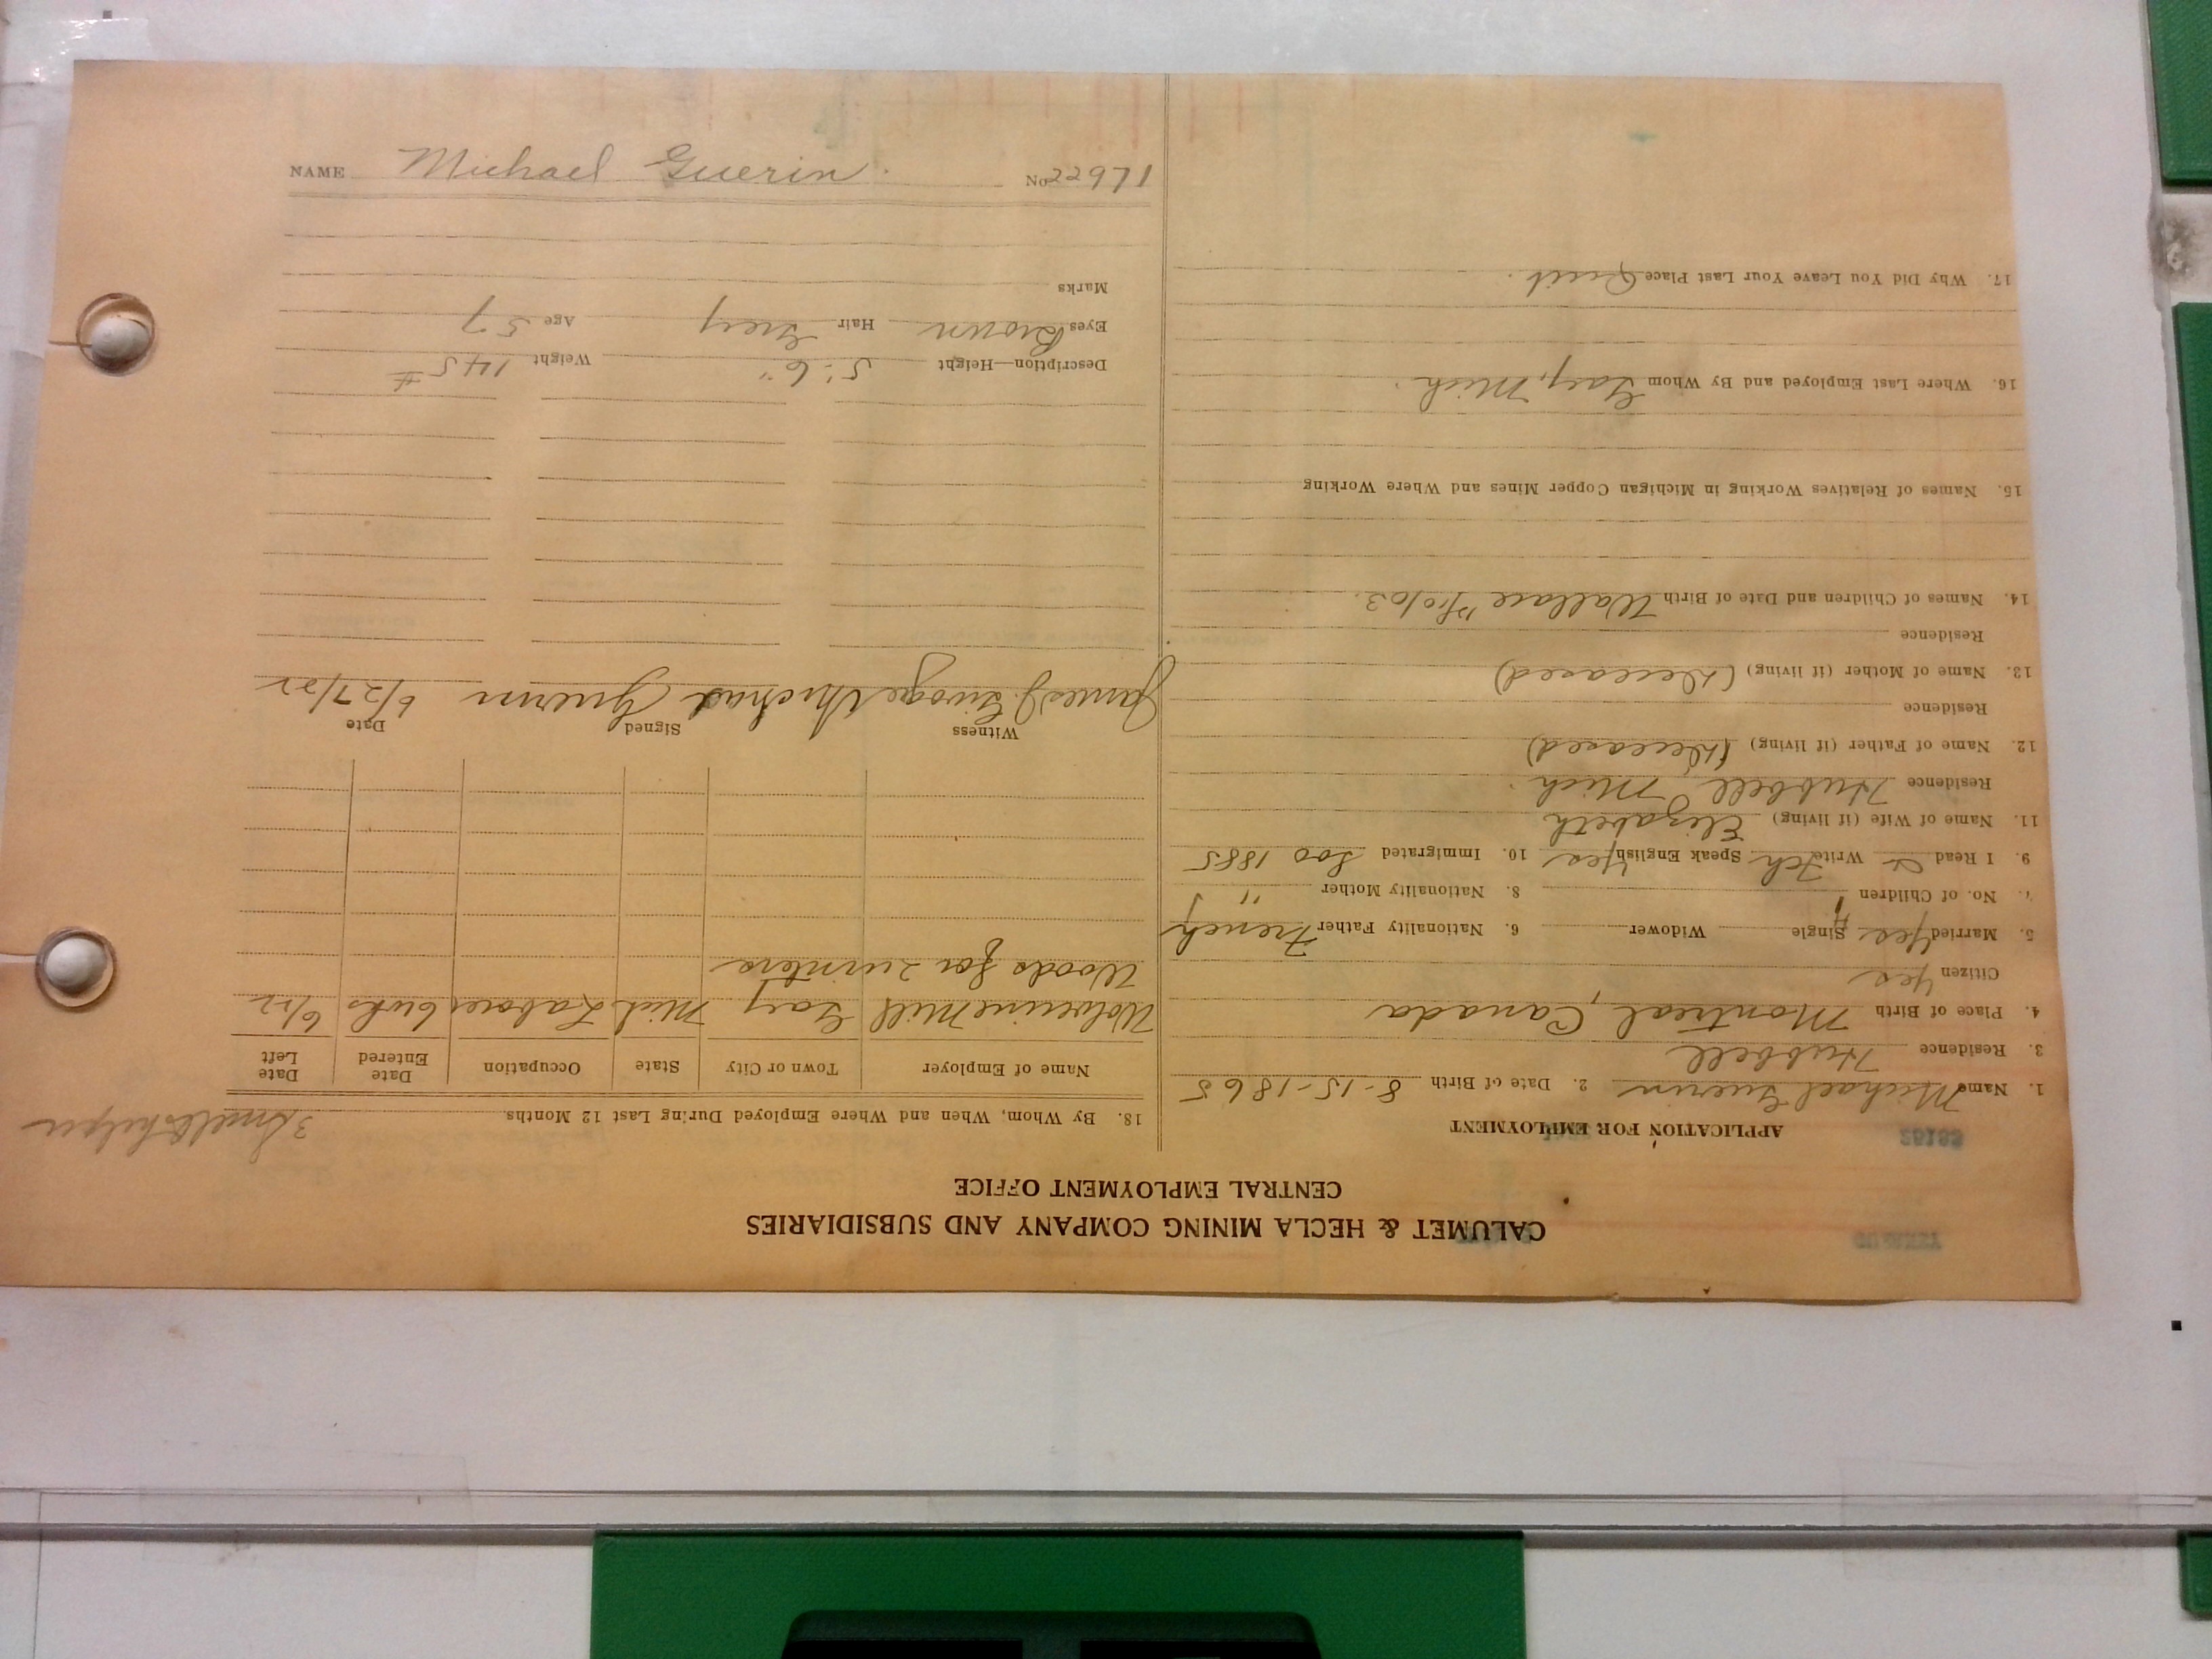 CALUMET & HECLA MINING COMPANY AND SUBSIDIARIES
CENTRAL EMPLOYMENT OFFICE
APPLICATION FOR EMPLOYMENT
1. Name Michael Guerin 2. Date of Birth 8-15-1865
3. Residence Hubbell
4. Place of Birth Montreal, Canada
Citizen Yes
5. Married Yes Single Widower 6. Nationality Father French
7. No. of Children 1 8. Nationality Mother "
9. I Read & Write Fch Speak English Yes 10. Immigrated Soo 1885
11. Name of Wife (if living) Elizabeth
Residence Hubbell Mich.
12. Name of Father (if living) (Deceased)
Residence
13. Name of Mother (if living) (Deceased)
Residence
14. Names of Children and Date of Birth Wallace /10/03.
15. Names of Relatives Working in Michigan Copper Mines and Where Working
16. Where Last Employed and By Whom Gay, Mich.
17. Why Did You Leave Your Last Place Quit.
18. By Whom, When and Where Employed During Last 12 Months
Name of Employer Town or City State Occupation Date Entered Date Left
Wolverine Mill Gay Mich Laborer 6 wks 6/22
Woods for
Witness Signed Date
James J. Michael Guerin 6/27/22
Description—Height 5' 6" Weight 145 #
Eyes Brown Hair Grey Age 57
Marks
NAME Michael Guerin. No 22971